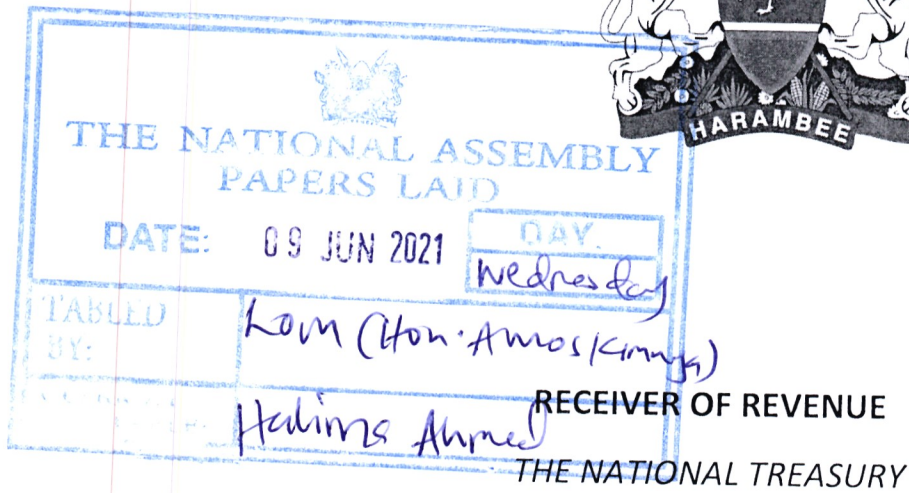 HARAMBEE
THE NATIONAL ASSEMBLY
PAPERS LAID
DATE: 09 JUN 2021
DAY.
Wednesday
TABLED
BY:
LOM (Hon. Amos Kimunya)
Halima Ahmed
RECEIVER OF REVENUE
THE NATIONAL TREASURY